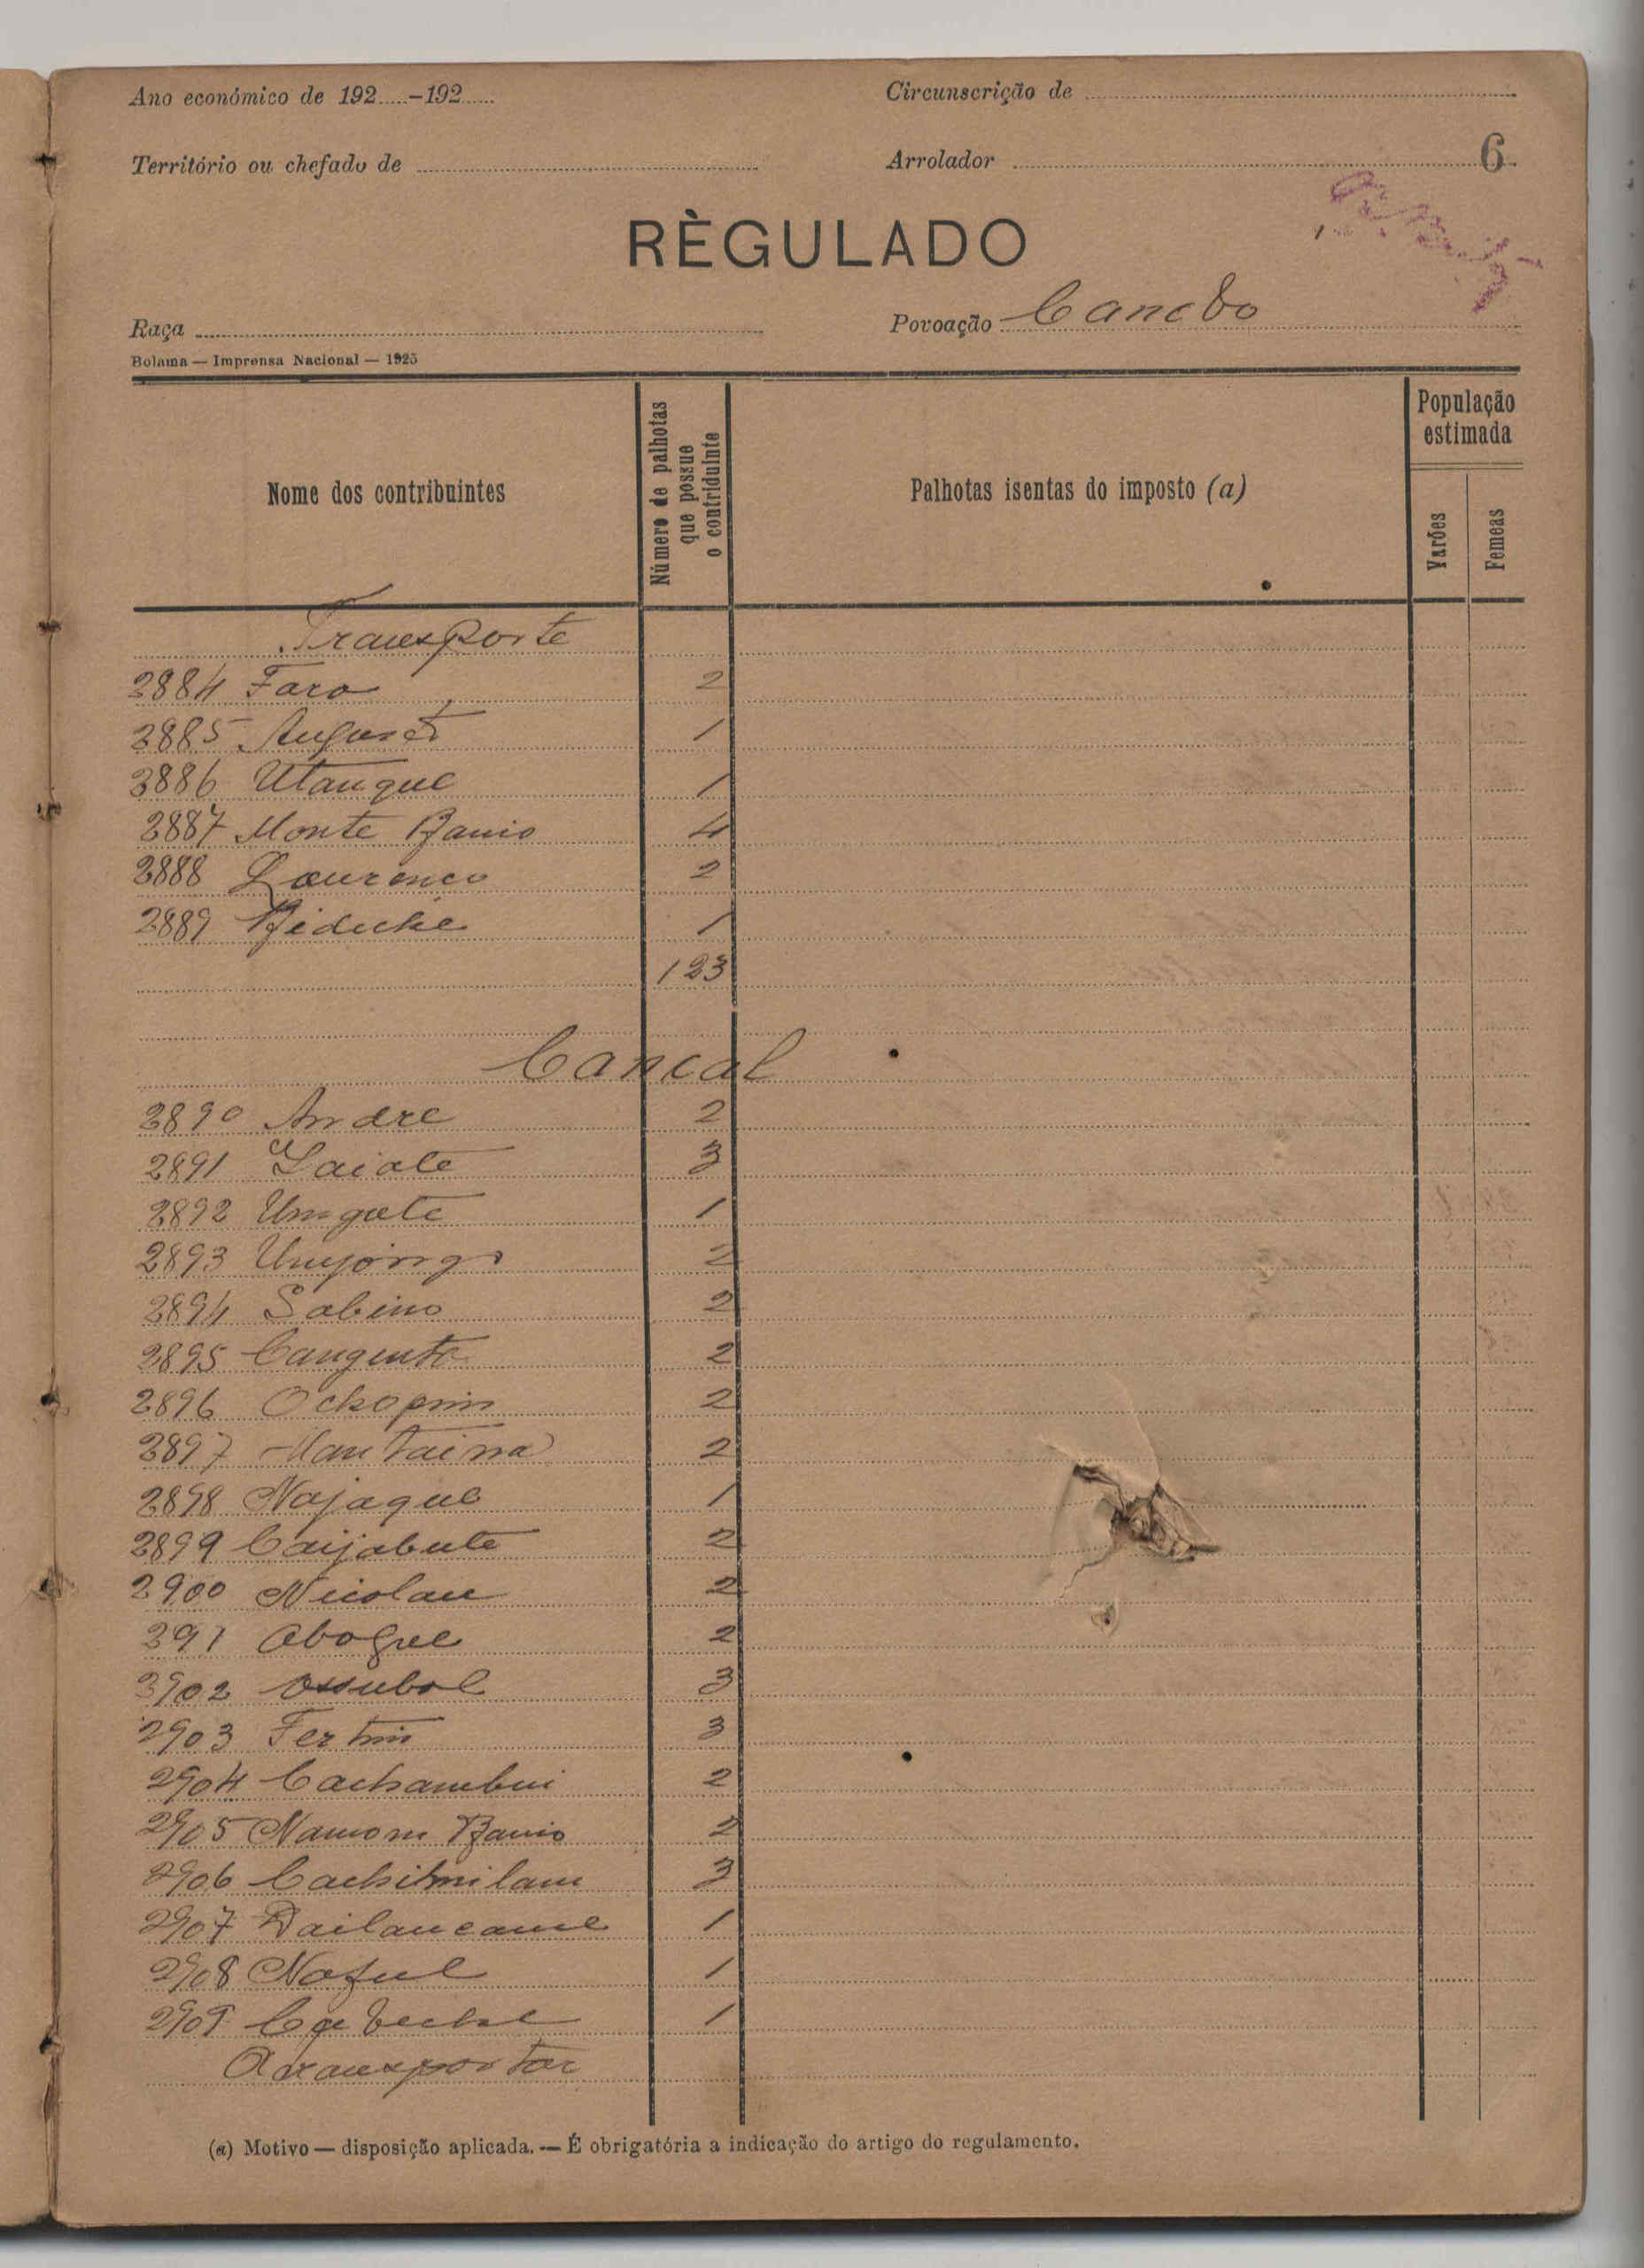 Ano económico de 192.....-192.....
Circunscrição de
Território ou chefado de
Arrolador
6
RÈGULADO
Raça
Povoação Cancbo
Bolama — Imprensa Nacional — 1925
Nome dos contribuintes
Número de palhotas que possue o contriduinte
Palhotas isentas do imposto (a)
População estimada
Varões
Femeas
Transporte
2884 Faro 2
2885 August 1
2886 Utanque 1
2887 Monte Banio 4
2888 Lourenco 2
2889 Biduke 1
123
Cancal
2890 Andre 2
2891 Laiate 3
2892 Umgate 1
2893 Unyongo 2
2894 Sabino 2
2895 Cangento 2
2896 Ochopin 2
2897 Mantaina 2
2898 Najaque 1
2899 Caijabute 2
2900 Nicolau 2
291 Obogue 2
2902 Ossubol 3
2903 Fertin 3
2904 Cachambui 2
2905 Namom Banio 2
2906 Cachitmilam 3
2907 Dailancame 1
2908 Noful 1
2909 1
A transportar
(a) Motivo — disposição aplicada. — É obrigatória a indicação do artigo do regulamento.